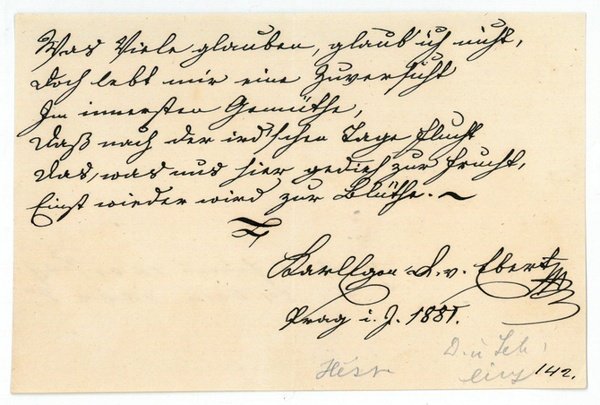 Was Viele glauben, glaub' ich nicht,
Doch lebt mir eine Zuversicht
Im innersten Gemüthe,
Daß nach der ird'schen Tage Flucht
Das, was uns hier gedieh zur Frucht,
Einst wieder wird zur Blüthe. ~
Karl Egon R. v. Ebert
Prag i. J. 1881.
D. u
142.